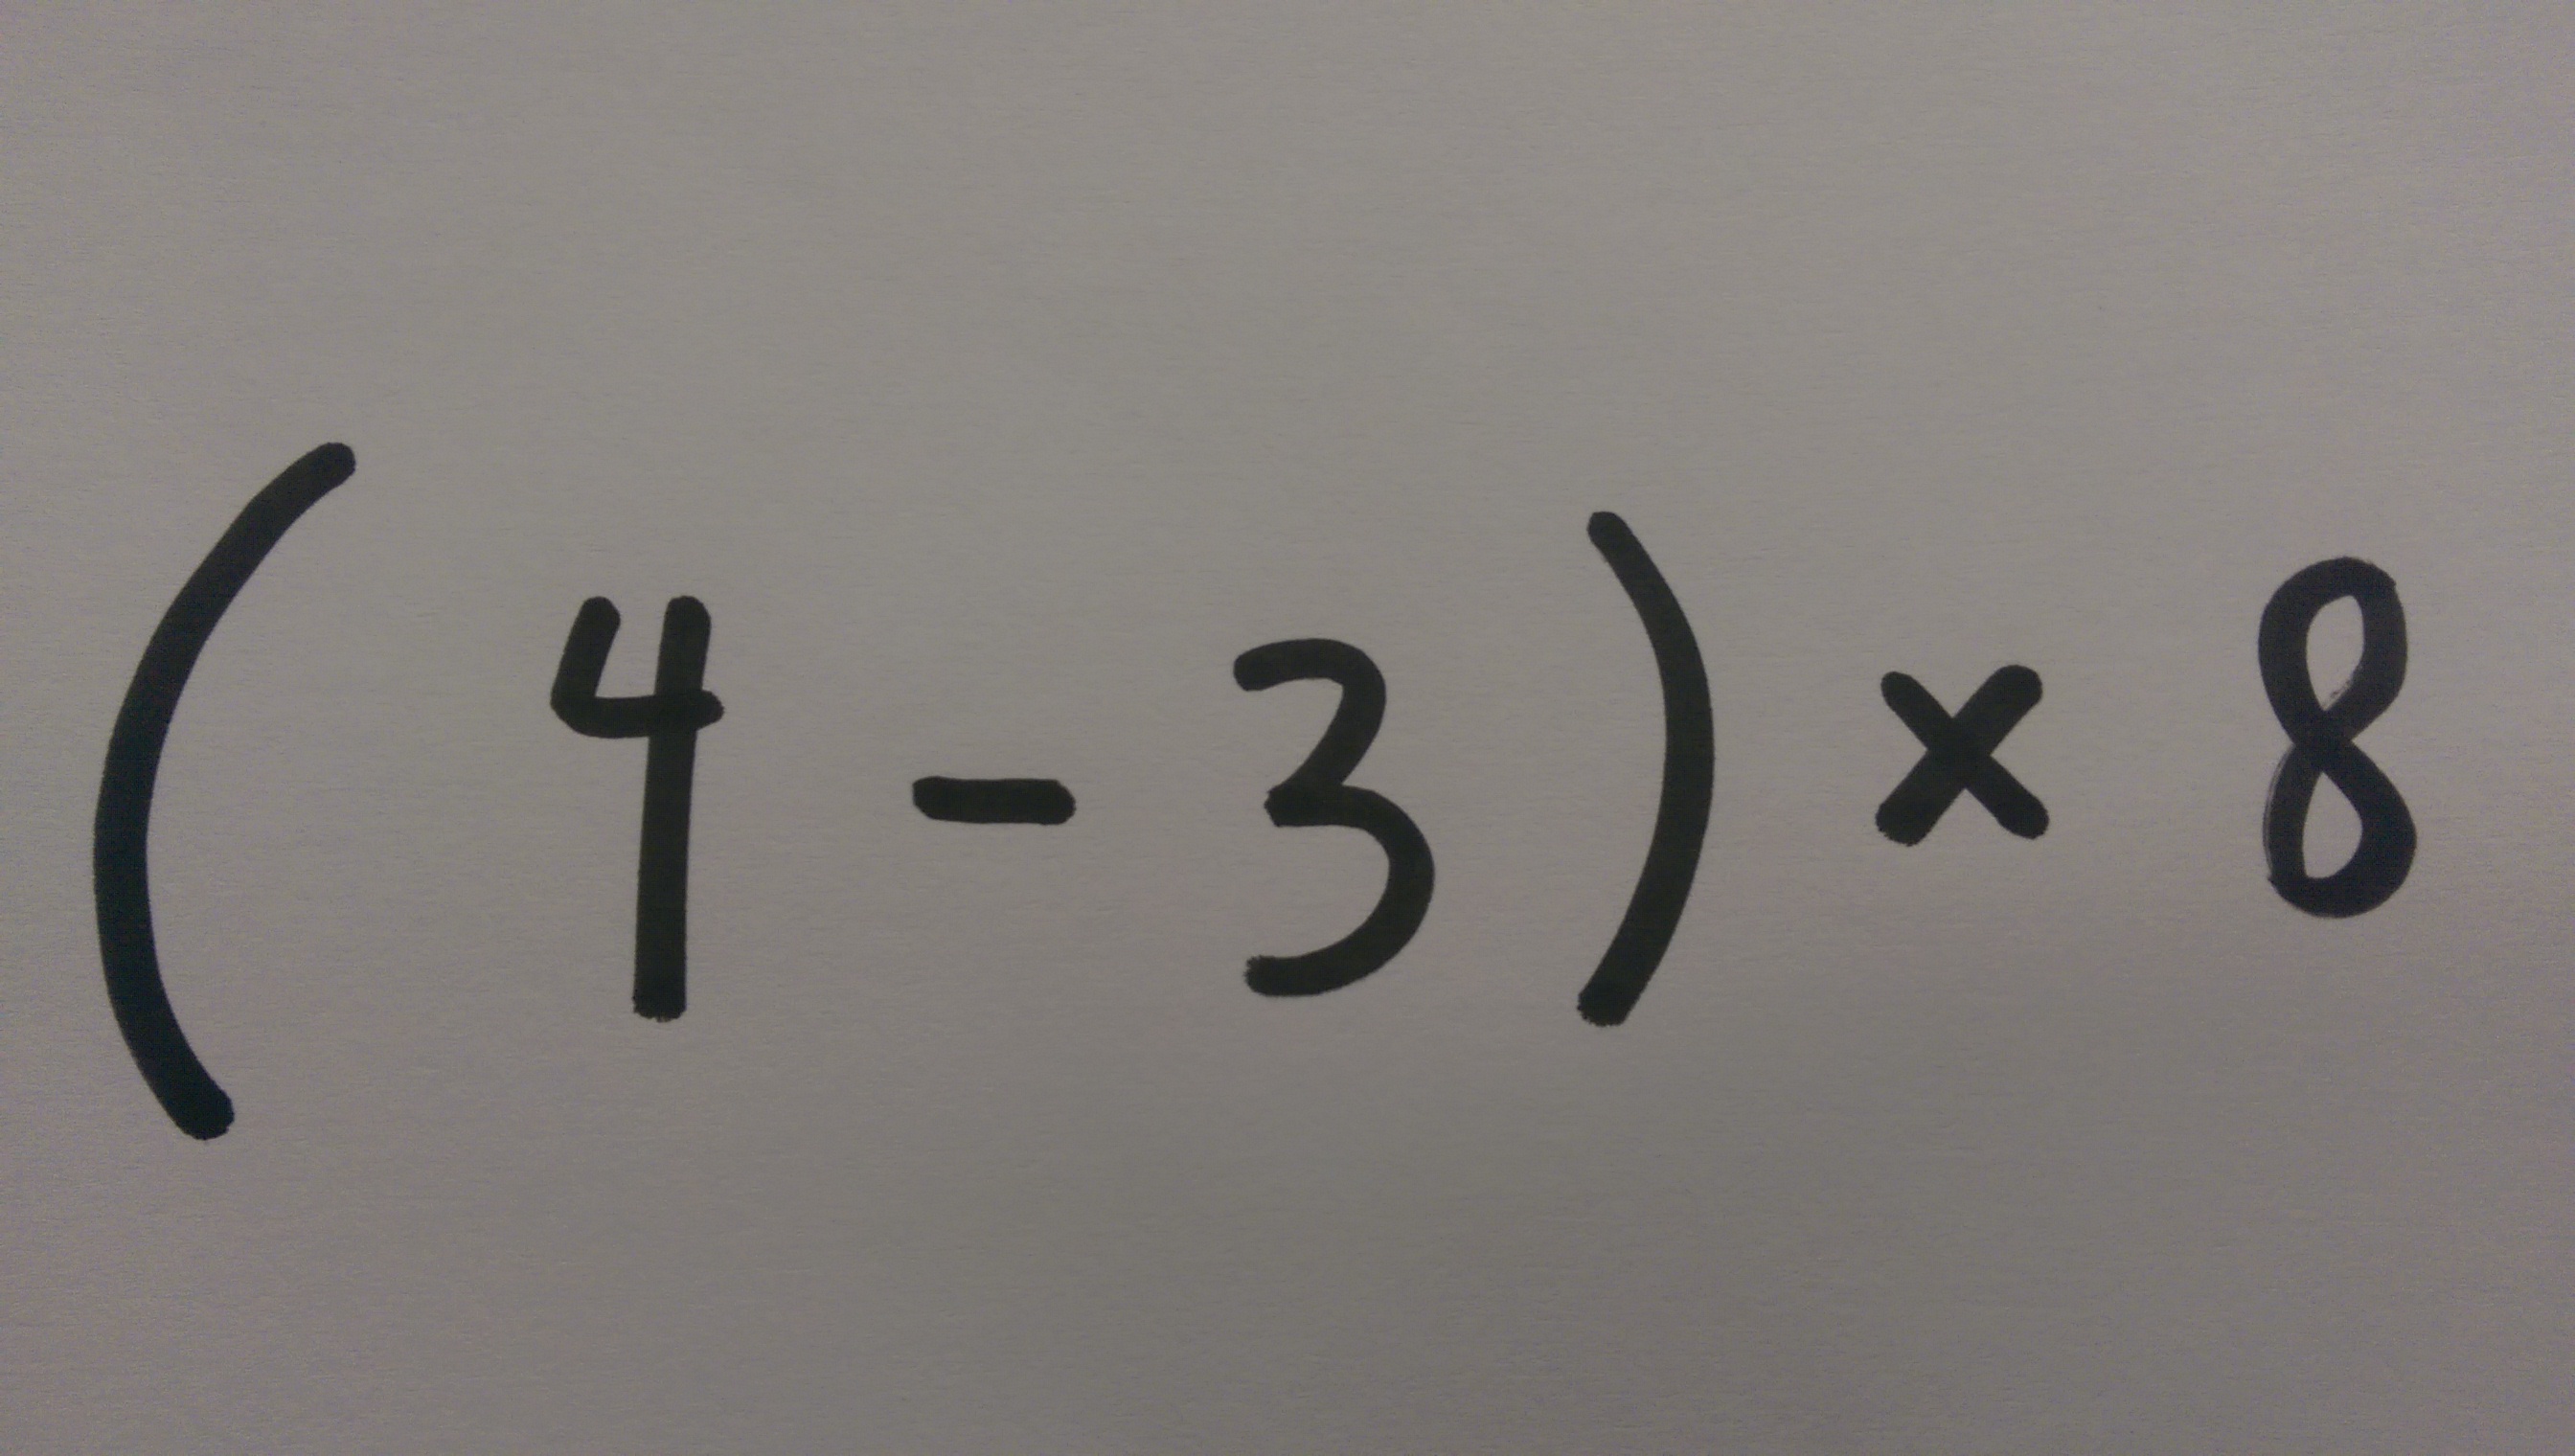 ( 4 - 3 ) × 8